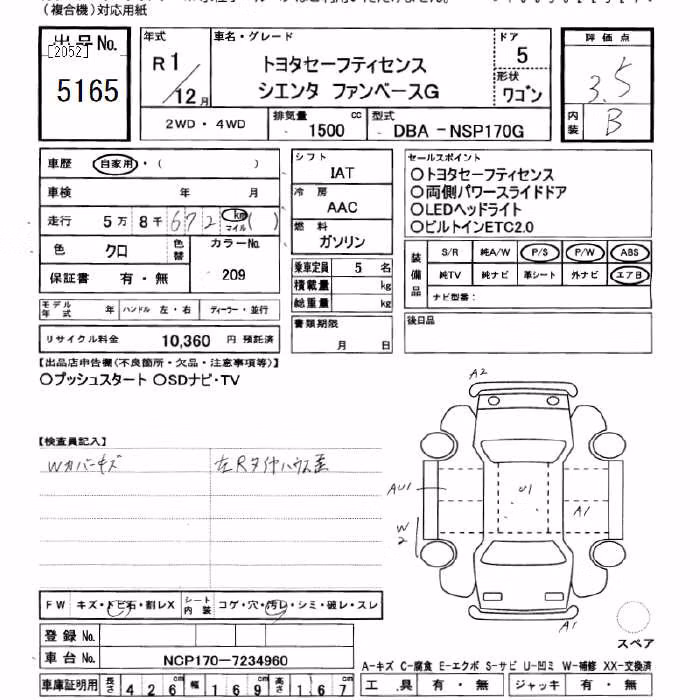 (複合機)対応用紙
出品No.
[2052]
5165
年式
R1/12月
車名・グレード
トヨタセーフティセンス
シエンタ ファンベースG
ドア
5
形状
ワゴン
2WD・4WD
排気量 1500 cc
型式 DBA-NSP170G
評価点
3.5
内装 B
車歴 自家用・( )
車検 年 月
走行 5万8千672 km マイル ( )
色 クロ 色替
カラーNo.
209
保証書 有・無
モデル年式 年 ハンドル 左・右 ディーラー・並行
リサイクル料金 10,360 円 預託済
シフト
IAT
冷房
AAC
燃料
ガソリン
乗車定員 5 名
積載量 kg
総重量 kg
書類期限
月 日
セールスポイント
○トヨタセーフティセンス
○両側パワースライドドア
○LEDヘッドライト
○ビルトインETC2.0
装備品
S/R 純A/W P/S P/W ABS
純TV 純ナビ 革シート 外ナビ エアB
ナビ型番:
後日品
【出品店申告欄(不良箇所・欠品・注意事項等)】
○プッシュスタート ○SDナビ・TV
【検査員記入】
Wカバーキズ
左Rタイヤハウス歪
A2
AU1
U1
A1
W2
A1
スペア
FW キズ・トビ石・割レX
シート内装 コゲ・穴・汚レ・シミ・破レ・スレ
登録No.
車台No. NCP170-7234960
車庫証明用 長さ 426cm 幅 169cm 高さ 167cm
A-キズ C-腐食 E-エクボ S-サビ U-凹ミ W-補修 XX-交換済
工具 有・無 ジャッキ 有・無